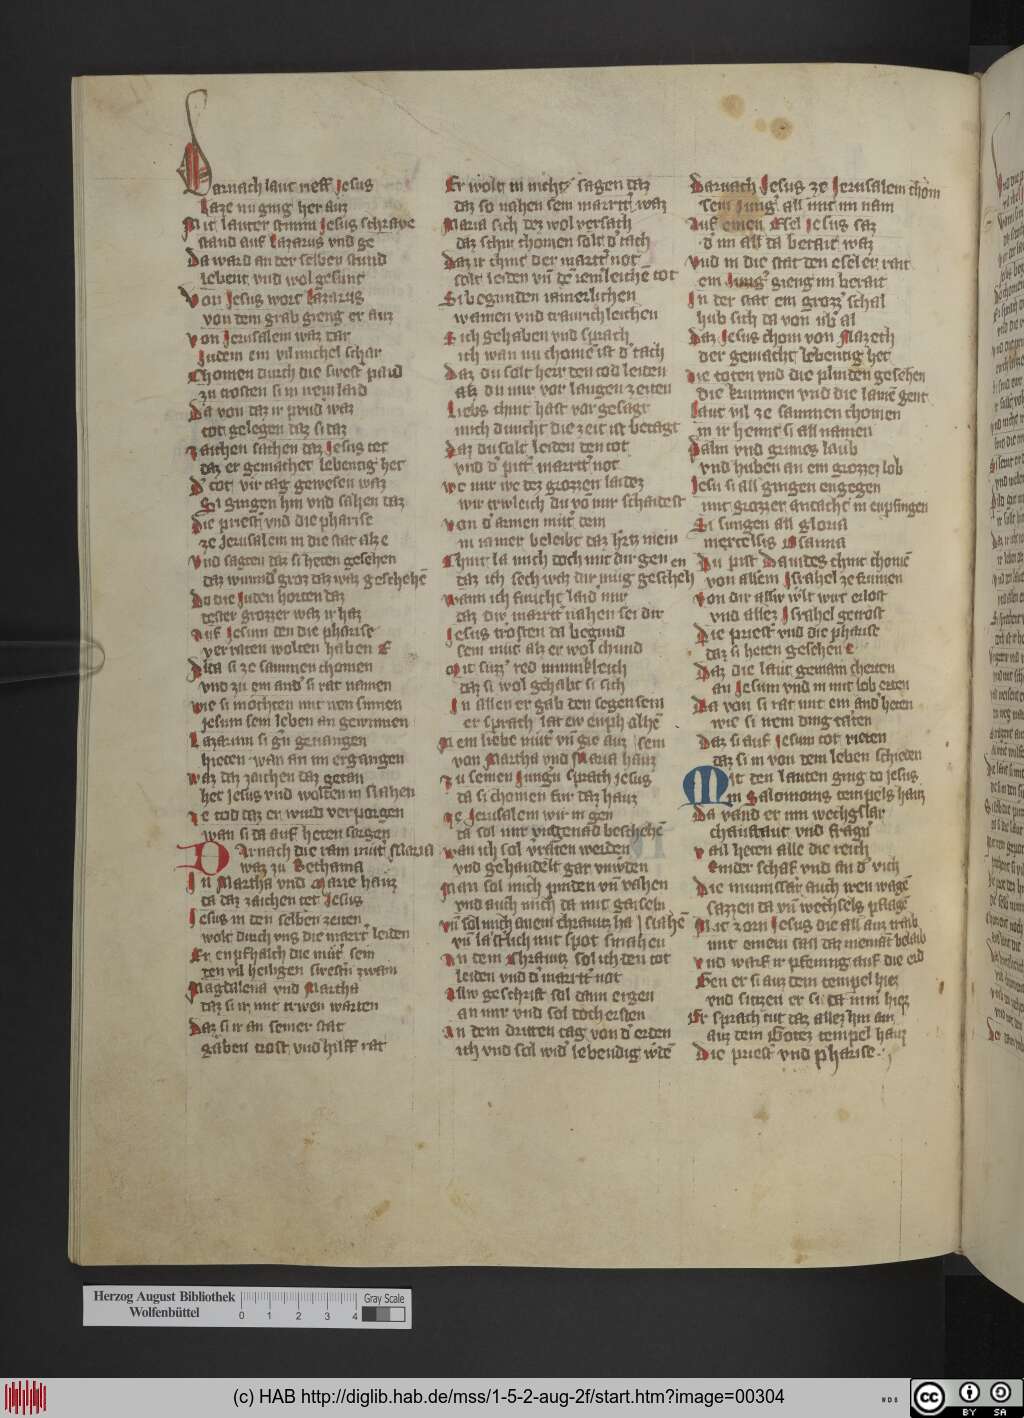 Darnach laut rieff Jesus
Laze nu ging her auz
Mit lauter stimm Jesus schraye
stand auf Lazarus vnd ge
Da ward an der selben stund
lebent vnd wol gesunt
Von Jesus wort Lazarus
von dem grab gieng er auz
von Jerusalem waz dar
Judem ein vil michel schar
Chomen durch die swest paid
zu trosten si in irem laid
Da von daz ir prud waz
tot gelegen daz si daz
zaichen sachen daz Jesus tet
daz er gemachet lebentig het
D tot vir tag gewesen waz
Si gingen hin vnd sahen daz
Die priest vnd die pharise
ze Jerusalem in die stat alze
Vnd sagten daz si heten gesehen
daz wunnd groz daz waz geschehen
Do die Juden horten daz
dester grozzer waz ir haz
Auf Jesum den die pharise
verraten wolten haben E
Alda si ze sammen chomen
vnd zu ein and si rat namen
wie si mochten mit iren sinnen
Jesum sein leben an gewinnen
Lazarum si gn geuangen
hieten wan an im ergangen
waz daz zaichen daz getan
het Jesus vnd wolten in slahen
ze tod daz er wurd verporgen
wan si da auf heten sorgen
Darnach die rain mut Maria
waz zu Bethania
In Martha vnd Marie hauz
da daz zaichen tet Jesus
Jesus in den selben zeiten
wolt durch vns die martt leiden
Er enpfhalch die mut sein
den vil heiligen swestn zwain
Magdalena vnd Martha
daz si ir mit trwen warten
Daz si ir an seiner stat
gaben trost vnd hilff rat
Er wolt in nicht sagen daz
daz so nahen sein martt waz
Maria sich dez wol versach
daz schir chomen solt d tach
Daz ir chint der martt not
solt leiden vn de iemleichen tot
Si begunden iamerlichen
wainen vnd traurichleichen
Sich gehaben vnd sprach
ich wan nu chomē ist d tach
Daz du solt herr den tod leiden
alz du mir vor langen zeiten
Liebs chint hast vor gesagt
mich duncht die zeit ist betagt
Daz du solt leiden den tot
vnd d pitt martt not
we mir we dez grozzen laidez
wir erwleich du vo mir schaidest
von d armen mut dein
in iamer beleibt daz htz mein
Chint la mich doch mit dir gen
daz ich sech waz dir mug gescheh en
wann ich furcht laid mir
daz dir martt nahen sei dir
Jesus trosten da begund
sein mut alz er wol chund
Mit suzz red minnikleich
daz si wol gehabt si sich
In allen er gab den segen sein
er sprach lat ew enpholhē
Mein liebe mut vn gie auz sein
von Martha vnd Maria hauz
zu seinen Jungn sprach Jesus
da si chomen fur daz hauz
ze Jerusalem wir in gen
da sol mir vngenad beschehē
wan ich sol vraten werden
vnd gehandelt gar vnwden
Man sol mich pinden vn vahen
vnd auch mich da mit gaiseln
vn sol mich an ein chrautz ha slahē
vn lastlich mit spot smahen
An dem Chrautz sol ich den tot
leiden vnd d martt not
Allw geschrift sol dann ergen
an mir vnd sol doch ersten
An dem dritten tag von d erden
ich vnd sol wid lebendig wde
Darnach Jesus ze Jerusalem chom
sein Jung all mit im nam
Auf einen Esel Jesus saz
d im all da berait waz
Vnd in die stat den esel er rait
ein Jung gieng im berait
In der stat ein grozz schal
hub sich da von ub al
Daz Jesus chom von Nazeth
der gemacht lebentig het
die toten vnd die plinden gesehen
die krummen vnd die lamē gent
Laut vil ze sammen chomen
in ir hennt si all namen
Palm vnd grunes laub
vnd huben an ein grozzez lob
Jesu si all gingen engegen
mit grozzer andacht in enpfingen
Si sungen all gloria
in excelsis Osanna
Du pist Dauides chint chomē
von allem Israhel ze frumen
Von dir allw wlt wirt erlost
vnd allez Israhel getrost
Die priest vnd die pharise
daz si heten gesehen e
Daz die laut gemain cherten
an Jesum vnd in mit lob erten
Da von si rat mit ein and heten
wie si irem ding taten
Daz si auf Jesum tot rieten
daz si in von dem leben schieden
Mit den lauten ging do Jesus
In Salomoins tempels hauz
Da vand er inn wechslar
chaufflaut vnd fragn
vail heten alle die reich
Rinder schaf vnd an d vich
Die munissar auch iren wagē
sazzen da vn wechsels pflagē
Mit zorn Jesus die all auz traib
mit einem sail daz nieman belaib
Vnd warf ir pfening auf die erd
Gen er si auz dem tempel hiez
vnd sitzen er si da inn hiez
Er sprach tut daz allez hin an
auz dem Gotez tempel hauz
Die priest vnd pharise
Herzog August Bibliothek
Wolfenbüttel
0 1 2 3 4
Gray Scale
(c) HAB http://diglib.hab.de/mss/1-5-2-aug-2f/start.htm?image=00304
WDB
cc
BY SA